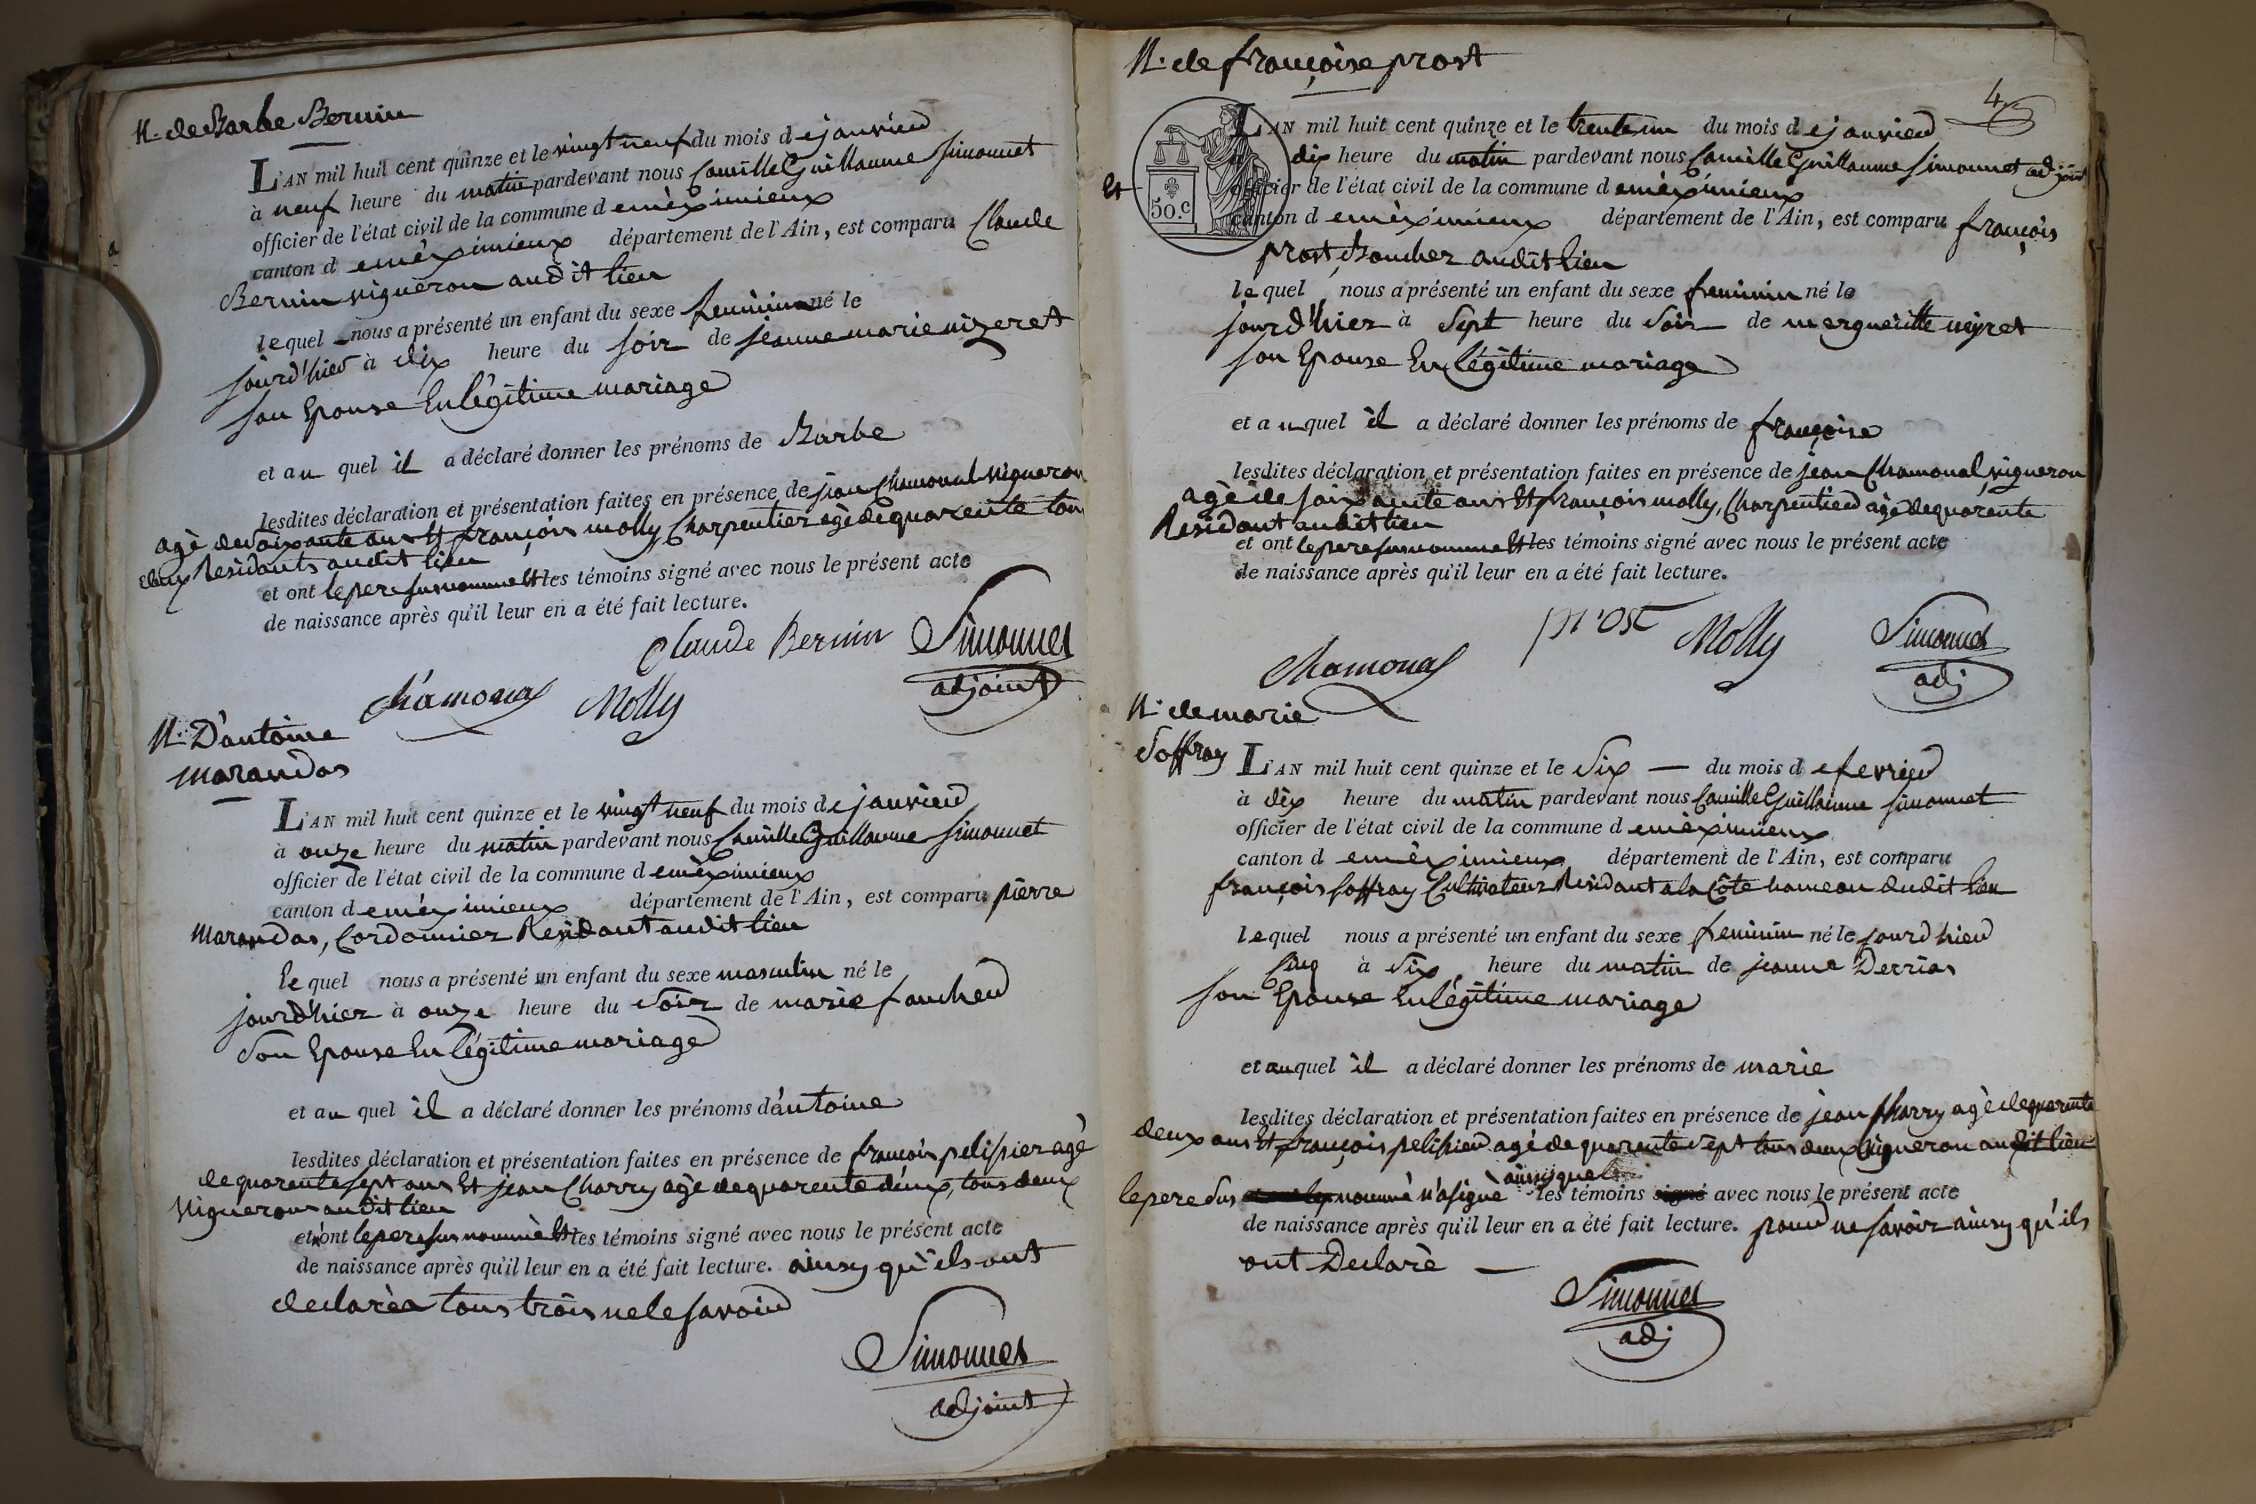 N. de Barbe Bernin
L'AN mil huit cent quinze et le vingt neuf du mois de janvier
à neuf heure du matin pardevant nous Camille Guillaume Simonnet
officier de l'état civil de la commune de mèximieux
canton de mèximieux département de l'Ain, est comparu Claude
Bernin vigneron audit lieu
lequel nous a présenté un enfant du sexe feminin né le
jourd'hier à dix heure du soir de jeanne marie nizeret
son Epouse En légitime mariage
et au quel il a déclaré donner les prénoms de Barbe
lesdites déclaration et présentation faites en présence de jean Chamonal vigneron
agè de soixante ans Et françois molly Charpentier agè de quarente tous
deux Residants audit lieu
et ont le pere susnommé Et les témoins signé avec nous le présent acte
de naissance après qu'il leur en a été fait lecture.
Claude Bernin Simonnet
adjoint
Chamonal Molly
N. D'antoine
marandas
L'AN mil huit cent quinze et le vingt neuf du mois de janvier
à onze heure du matin pardevant nous Camille Guillaume Simonnet
officier de l'état civil de la commune de mèximieux
canton de mèximieux département de l'Ain, est comparu pierre
Marandas, Cordonnier Residant audit lieu
lequel nous a présenté un enfant du sexe masculin né le
jourd'hier à onze heure du soir de marie faucher
son Epouse En légitime mariage
et au quel il a déclaré donner les prénoms d'antoine
lesdites déclaration et présentation faites en présence de françois pelissier agè
de quarente sept ans Et jean Charry agè de quarente deux, tous deux
vignerons audit lieu
et n'ont le pere susnommè Et les témoins signé avec nous le présent acte
de naissance après qu'il leur en a été fait lecture. ainsy qu'ils ont
declarèa tous trois ne le savoir
Simonnet
adjoint
N. de françoise prost
4
L'AN mil huit cent quinze et le trente un du mois de janvier
dix heure du matin pardevant nous Camille Guillaume Simonnet adjoint
Et officier de l'état civil de la commune de mèximieux
50.c
canton de mèximieux département de l'Ain, est comparu françois
prost Boucher audit lieu
lequel nous a présenté un enfant du sexe feminin né le
jourd'hier à sept heure du soir de mergueritte neyret
son Epouse En légitime mariage
et au quel il a déclaré donner les prénoms de françoise
lesdites déclaration et présentation faites en présence de jean Chamonal vigneron
agè de soixante ans Et françois molly, Charpentier agè de quarente
Residant audit lieu
et ont le pere susnommé Et les témoins signé avec nous le présent acte
de naissance après qu'il leur en a été fait lecture.
prost Molly Simonnet
Chamonal adj
N. de marie
Soffray
L'AN mil huit cent quinze et le six du mois de fevrier
à dix heure du matin pardevant nous Camille Guillaume Simonnet
officier de l'état civil de la commune de mèximieux
canton de mèximieux département de l'Ain, est comparu
françois soffray Cultivateur Residant a la Côte hameau dudit lieu
lequel nous a présenté un enfant du sexe feminin né le jourd hier
Cinq à six heure du matin de jeanne Derrias
son Epouse En légitime mariage
et auquel il a déclaré donner les prénoms de marie
lesdites déclaration et présentation faites en présence de jean Charry agè de quarente
deux ans Et françois pelissier agé de quarente sept tous deux vigneron audit lieu
ainsy que
le pere sus nommé n'a signé les témoins signé avec nous le présent acte
de naissance après qu'il leur en a été fait lecture. pour ne savoir ainsy qu'ils
ont Declarè
Simonnet
adj